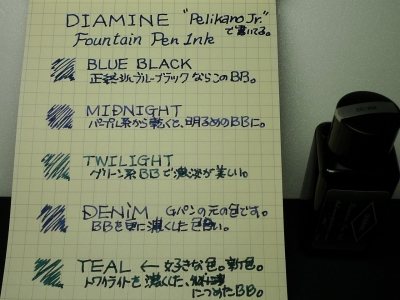 DIAMINE "Pelikano Jr."
で書いてる。
Fountain Pen Ink
BLUE BLACK
正統ジルブルーブラック ならこのBB。
MIDNIGHT
パープル系から乾くと、明るめのBBに。
TWILIGHT
グリーン系BBで濃淡が美しい。
DENiM Gパンの元の色です。
BBを更に濃くした色合い。
TEAL ← 好きな色。新色。
トワイライトを濃くした、
につめたBB。